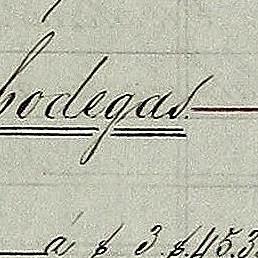 bodegas.
á $ 3 $.45.3